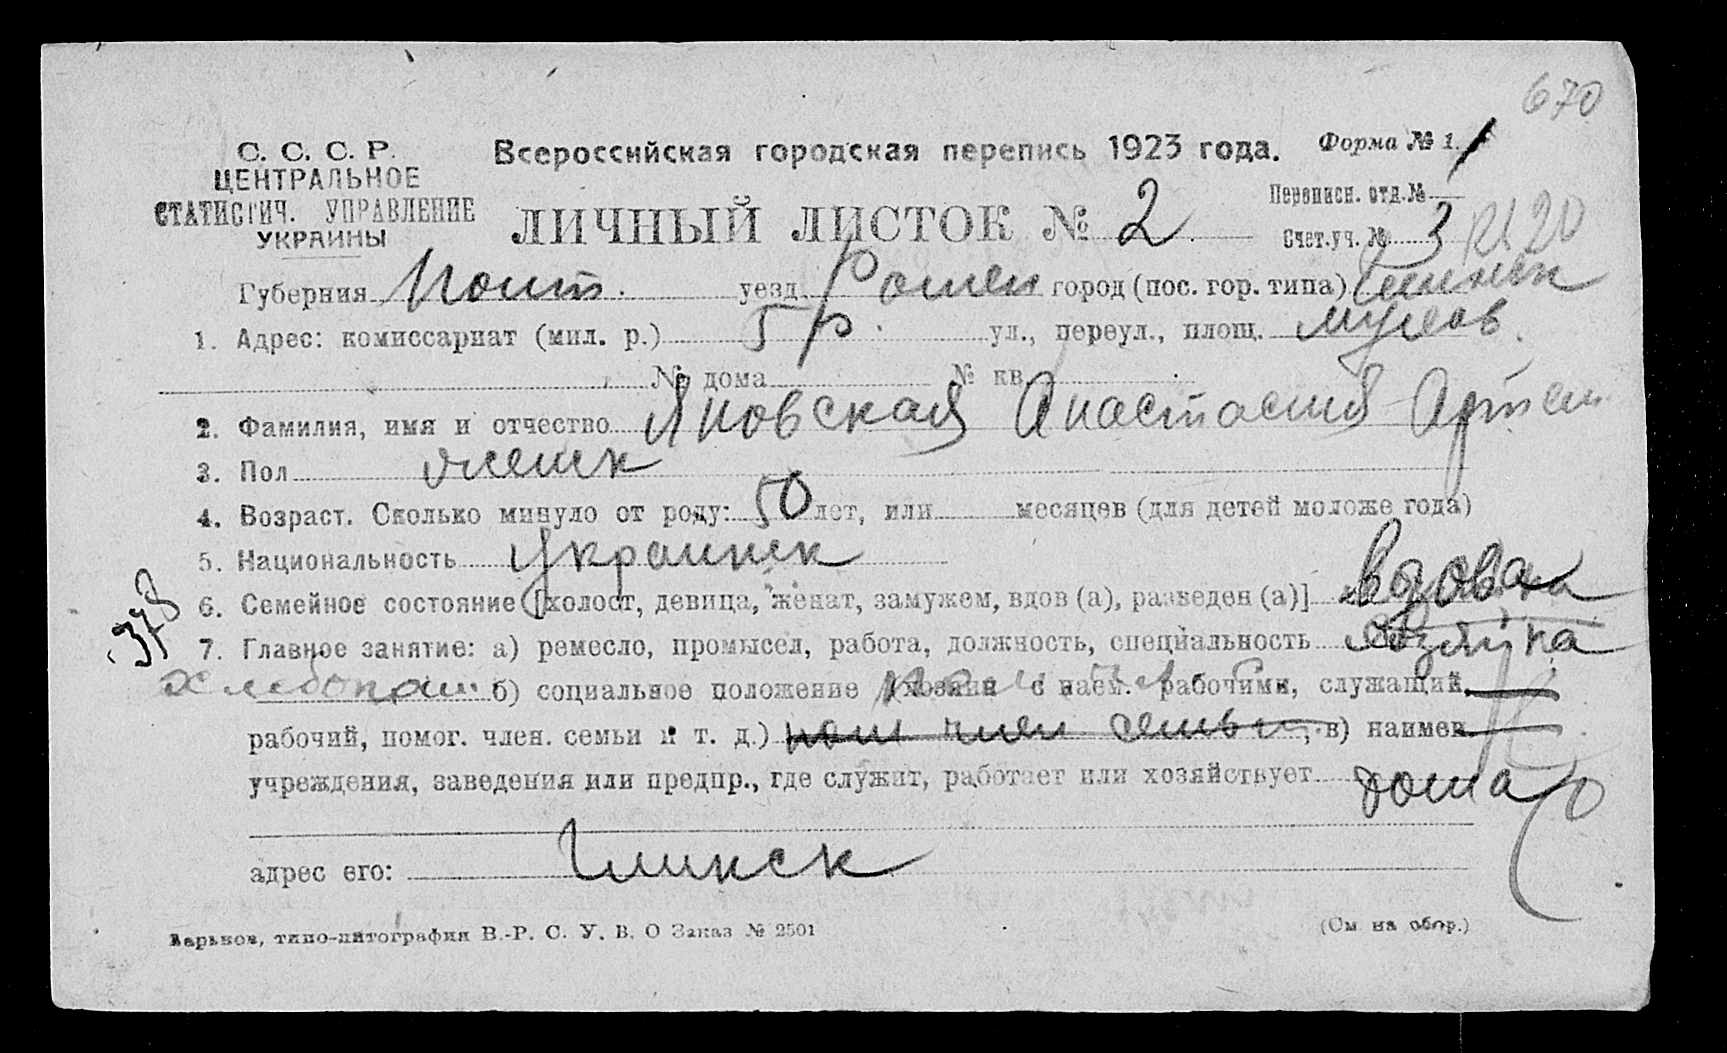 670
С. С. С. Р.
ЦЕНТРАЛЬНОЕ
СТАТИСТИЧ. УПРАВЛЕНИЕ
УКРАИНЫ
Всероссийская городская перепись 1923 года.
Форма № 1.
ЛИЧНЫЙ ЛИСТОК № 2
Переписн. отд. № 1
Счет. уч. № 3
20
Губерния Полт. уезд Ромен город (пос. гор. типа) Глинск
1. Адрес: комиссариат (мил. р.) 5 р. ул., переул., площ.
№ дома № кв.
2. Фамилия, имя и отчество Яновская Анастасия Артем
3. Пол женск
4. Возраст. Сколько минуло от роду: 50 лет, или месяцев (для детей моложе года)
5. Национальность Украинск
378
6. Семейное состояние [холост, девица, женат, замужем, вдов (а), разведен (а)] вдова
7. Главное занятие: а) ремесло, промысел, работа, должность, специальность
хлебопаш. б) социальное положение (хозяин с наем. рабочими, служащий,
рабочий, помог. член. семьи и т. д.) пом член семьи, в) наимен.
учреждения, заведения или предпр., где служит, работает или хозяйствует дома
адрес его: Глинск
Харьков, типо-литография В.-Р. С. У. В. О Заказ № 2501
(См на обор.)